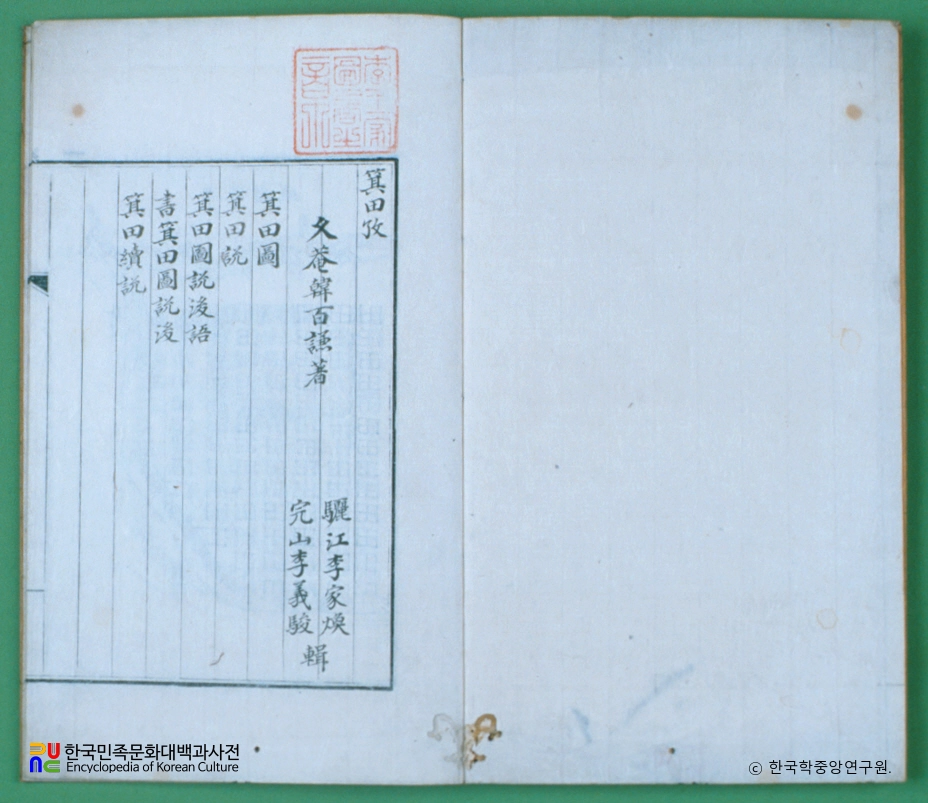 箕田攷
久菴韓百謙著
驪江李家煥
完山李義駿
輯
箕田圖
箕田説
箕田圖説後語
書箕田圖説後
箕田續説
한국민족문화대백과사전
Encyclopedia of Korean Culture
ⓒ 한국학중앙연구원.